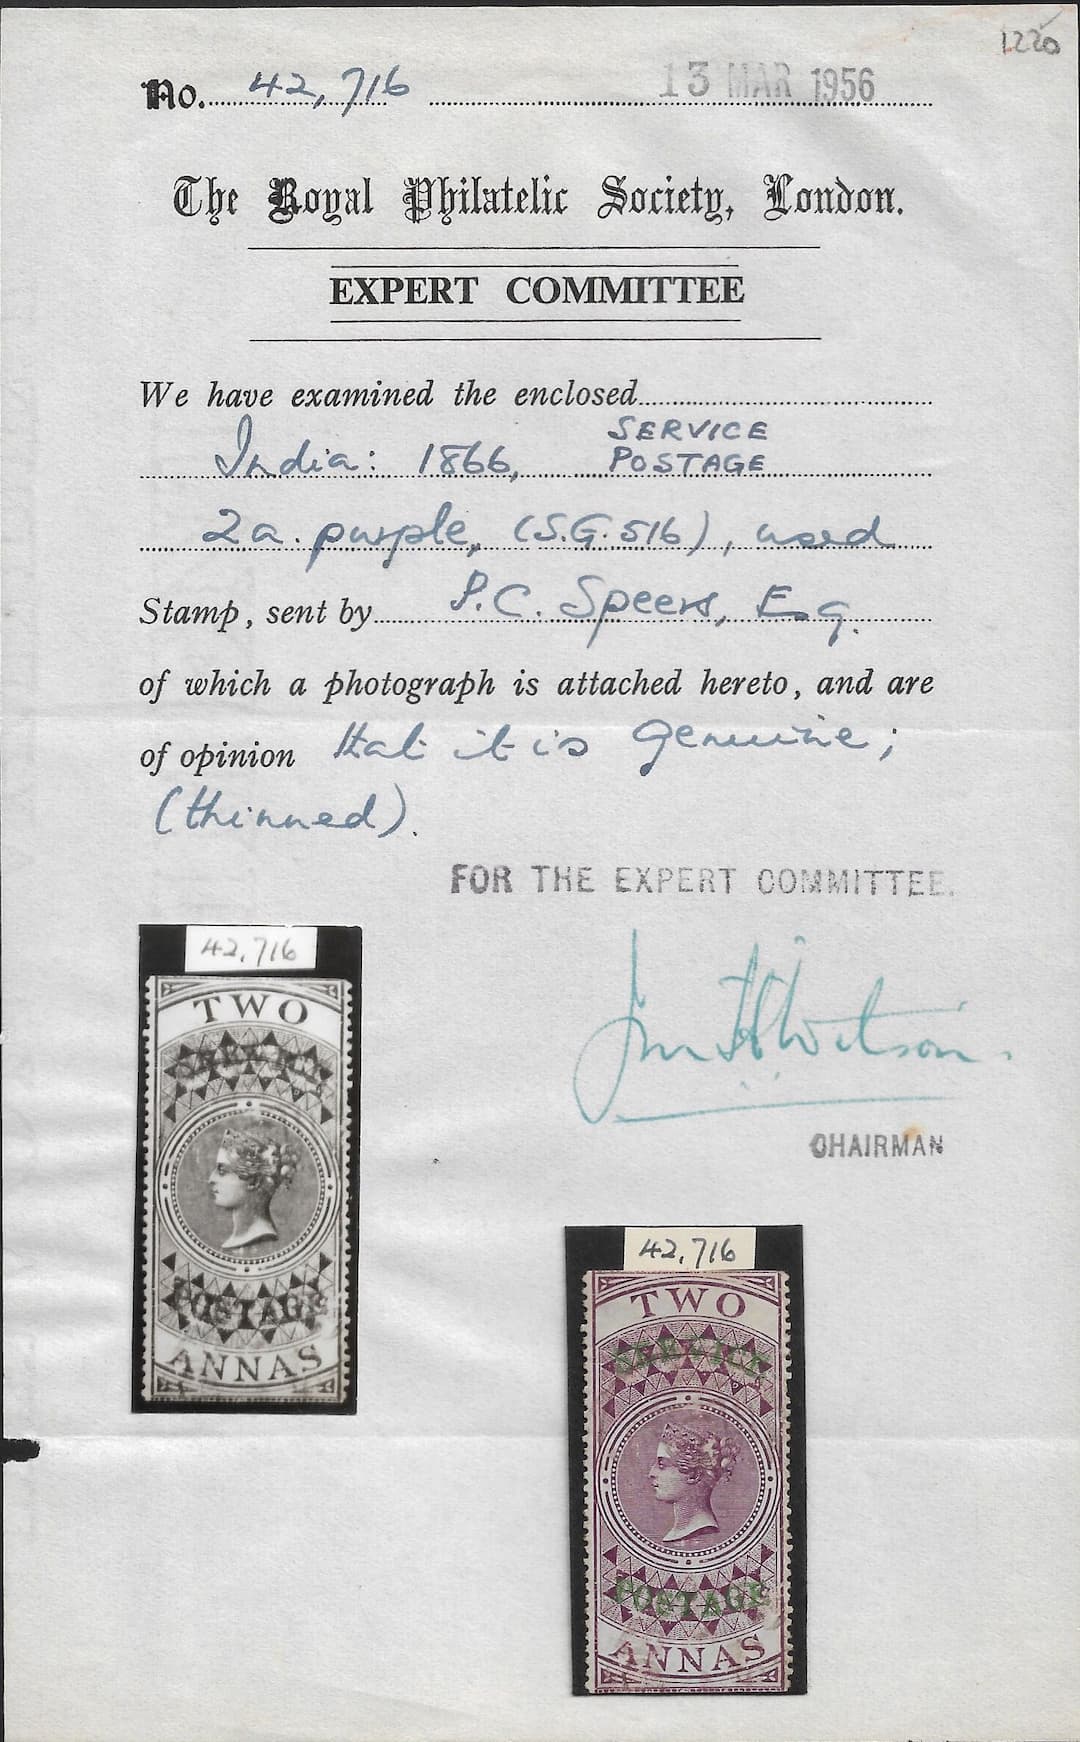 1220
No. 42,716 13 MAR 1956
The Royal Philatelic Society, London.
EXPERT COMMITTEE
We have examined the enclosed
India: 1866, SERVICE
POSTAGE
2a. purple, (S.G. 516), used
Stamp, sent by P.C. Speers, Esq.
of which a photograph is attached hereto, and are
of opinion that it is genuine;
(thinned).
FOR THE EXPERT COMMITTEE.
CHAIRMAN
42,716
TWO
SERVICE
POSTAGE
ANNAS
42,716
TWO
SERVICE
POSTAGE
ANNAS